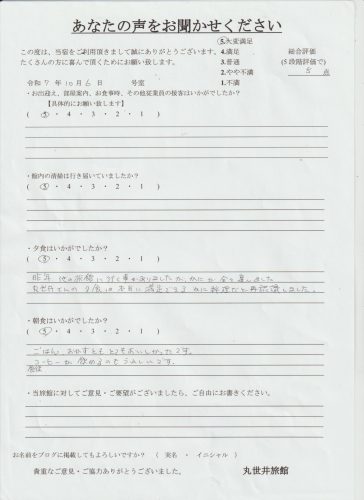 あなたの声をお聞かせください
この度は、当宿をご利用頂きまして誠にありがとうございます。
たくさんの方に喜んで頂くためにお願い致します。
5.大変満足
4.満足
3.普通
2.やや不満
1.不満
総合評価
(5段階評価で)
5 点
令和 7 年 10 月 6 日 号室
・お出迎え、部屋案内、お食事時、その他従業員の接客はいかがでしたか?
【具体的にお願い致します】
( 5 ・ 4 ・ 3 ・ 2 ・ 1 )
・館内の清掃は行き届いていましたか?
( 5 ・ 4 ・ 3 ・ 2 ・ 1 )
・夕食はいかがでしたか?
( 5 ・ 4 ・ 3 ・ 2 ・ 1 )
昨年 他の旅館に行く事がありましたが、かにを
丸世井さんの 夕食は本当に満足できる かに料理だと再認識しました。
・朝食はいかがでしたか?
( 5 ・ 4 ・ 3 ・ 2 ・ 1 )
ごはん、おかずともとてもおいしかったです。
コーヒーが飲めるのもうれしいです。
・当旅館に対してご意見・ご要望がございましたら、ご自由にお書きください。
お名前をブログに掲載してもよろしいですか? ( 実名 ・ イニシャル )
貴重なご意見・ご協力ありがとうございました。
丸世井旅館